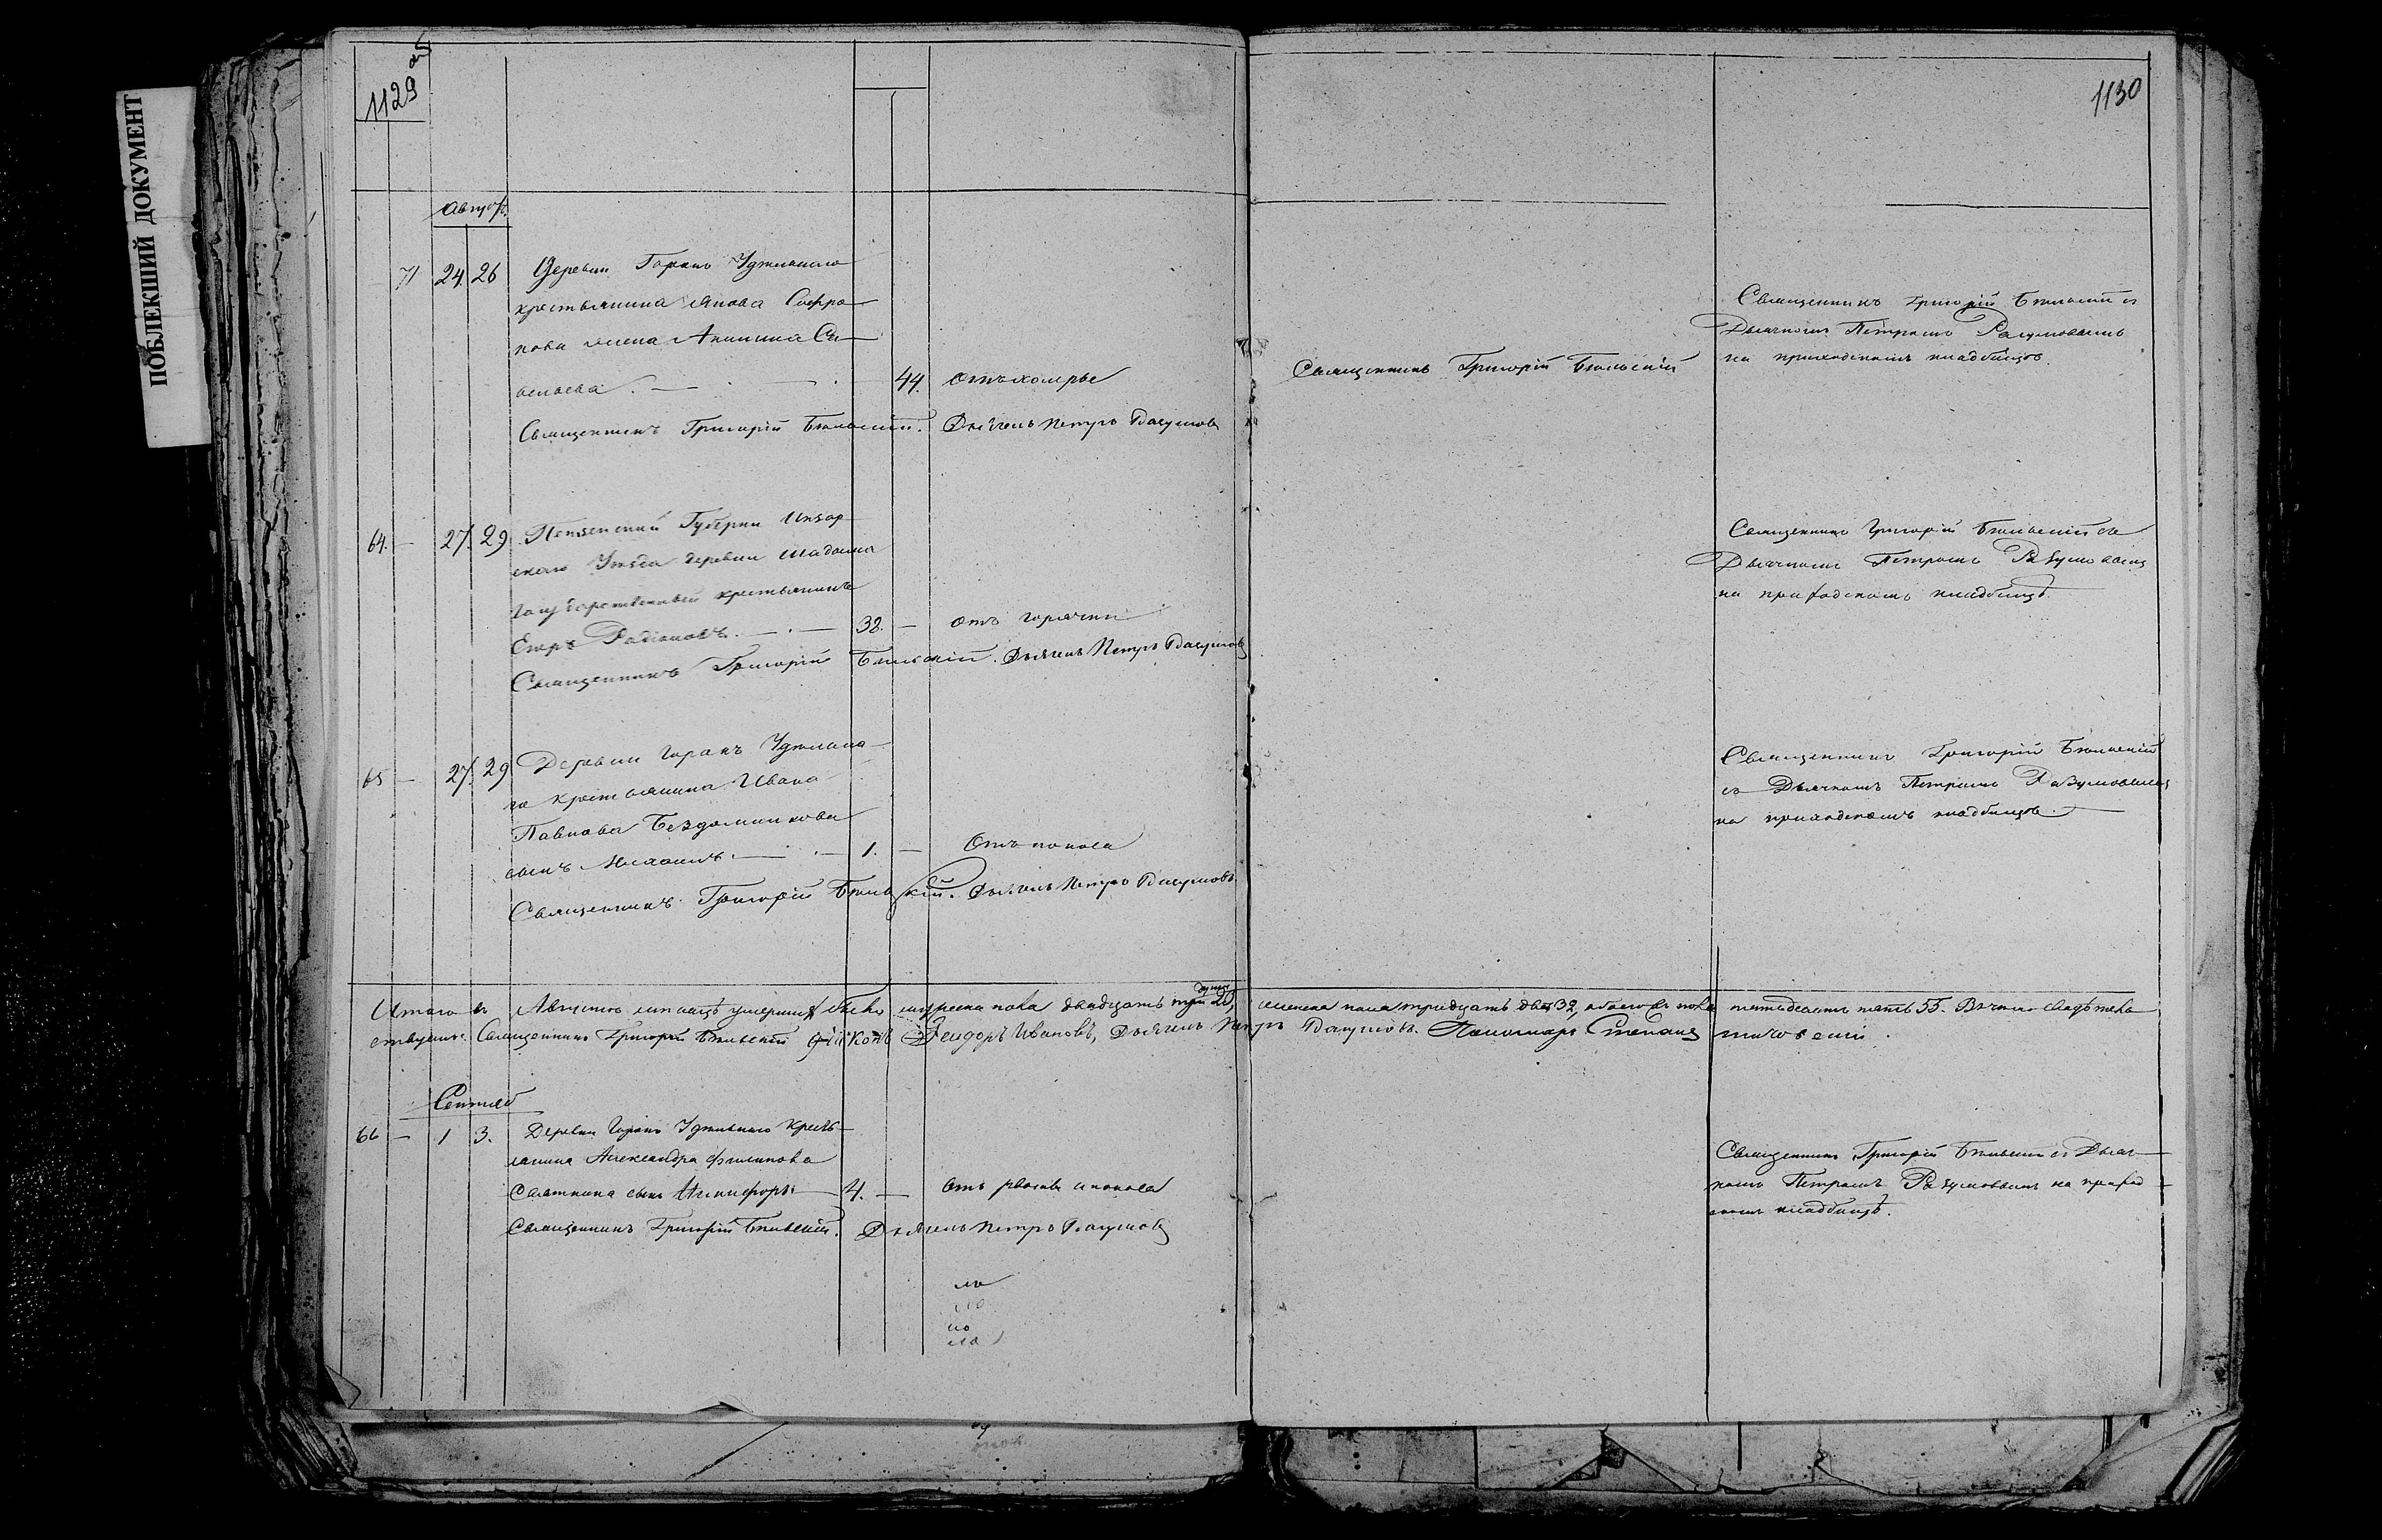 ПОБЛЕКШИЙ ДОКУМЕНТ
1129 об
1130
Август.
71 24. 26 Деревни Горокъ Удѣльнаго
крестьянина Якова Софро
нова жена Акилина Са
вельева. 44. Отъ холеры
Священникъ Григорій Бѣльскій. Дьячекъ Петръ Разумовъ
Священникъ Григорій Бѣльскій
Священникъ Григорій Бѣльскій съ
Дьячкомъ Петромъ Разумовымъ
на приходскомъ кладбищѣ.
64. — 27. 29 Пензенской Губерніи Инзар
скаго Уѣзда деревни
государственный крестьянинъ
Егоръ Радіоновъ. — 32. — отъ горячки
Священникъ Григорій Бѣльскій. Дьячекъ Петръ Разумовъ
Священникъ Григорій Бѣльскій съ
Дьячкомъ Петромъ Разумовымъ
на приходскомъ кладбищѣ.
65 — 27. 29 Деревни Горокъ Удѣльна
го крестьянина Ивана
Павлова Бездомникова
сынъ Михаилъ. — 1. — Отъ поноса
Священникъ Григорій Бѣльскій. Дьячекъ Петръ Разумовъ
Священникъ Григорій Бѣльскій
съ Дьячкомъ Петромъ Разумовымъ
на приходскомъ кладбищѣ.
Итого въ Августѣ мѣсяцѣ умершихъ было мужеска пола двадцать три 23, женска пола тридцать два 32, обоего пола пятьдесятъ пять 55. Въ чемъ свидѣтель
ствуемъ: Священникъ Григорій Бѣльскій Діаконъ Феидоръ Ивановъ, Дьячекъ Петръ Разумовъ. Пономарь Степанъ
Сентяб
66 — 1 3. Деревни Горокъ Удѣльнаго Кресть
янина Александра Филипова
сынъ Никифоръ — 4. — отъ рвоты и поноса
Священникъ Григорій Бѣльскій. Дьячекъ Петръ Разумовъ
Священникъ Григорій Бѣльскій съ Дьяч
комъ Петромъ Разумовымъ на приход
скомъ кладбищѣ.